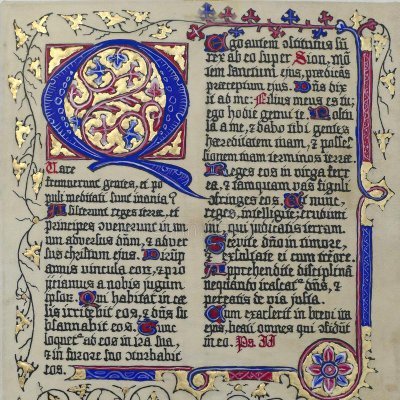 Quare
fremuerunt gentes, et po
puli meditati sunt inania?
Astiterunt reges terræ, et
principes convenerunt in un
um adversus dñm, & adver
sus christum ejus. Dirup
amus vincula eorum, & pro
iciamus a nobis jugum
ipsor. Qui habitat in cæ
lis irridebit eos, & dñs su
bsannabit eos. Tunc
loquet' ad eos in ira sua,
& in furore suo cōturbabit
eos.
Ego autem cōstitutus sū
rex ab eo super Sion, mō
tem sanctum ejus, prædicās
præceptum ejus. Dñs dix
it ad me: Filius meus es tu;
ego hodie genui te. Postu
la a me, & dabo tibi gentes
hæreditatem tuam, & posses
sionem tuam terminos terræ.
Reges eos in virga ferrea
& tamquam vas figuli
cōfringes eos. Et nunc
reges, intelligite; erudimi
ni, qui judicatis terram.
Servite dño in timore,
& exsultate ei cum tremōre.
Apprehendite disciplinā
nequando irascat' dñs, &
pereatis de via justa.
Cum exarserit in brevi ira
ejus, beati omnes qui cōfidūt
in eo. Ps. II